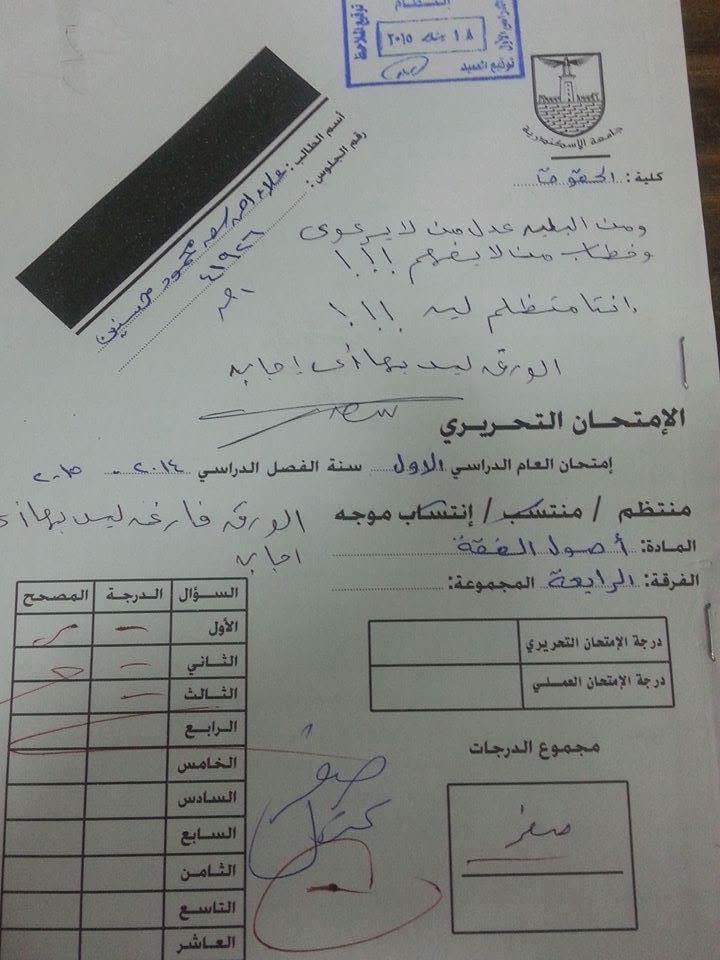 ١٨ يناير ٢٠١٥
توقيع العميد
توقيع الملاحظ
جامعة الإسكندرية
كلية: الحقوق
اسم الطالب: علاء احمد سعد محمود حسنين
رقم الجلوس: ٤١٩٢٦
ومن البليه عدل من لا يرعوى
وخطاب من لا يفهم !!!
انتا متظلم ليه !!!
الورقه ليس بها أى إجابه
الإمتحان التحريري
إمتحان العام الدراسي الاول سنة الفصل الدراسي ٢٠١٤ - ٢٠١٥
منتظم / منتسب / إنتساب موجه
المادة: أصول الفقة
الفرقة: الرابعة المجموعة:
الورقه فارغه ليس بها أى
اجابه
السؤال الدرجة المصحح
الأول -
الثاني -
الثالث -
الرابع
الخامس
السادس
السابع
الثامن
التاسع
العاشر
درجة الإمتحان التحريري
درجة الإمتحان العملي
مجموع الدرجات
صفر
صفر